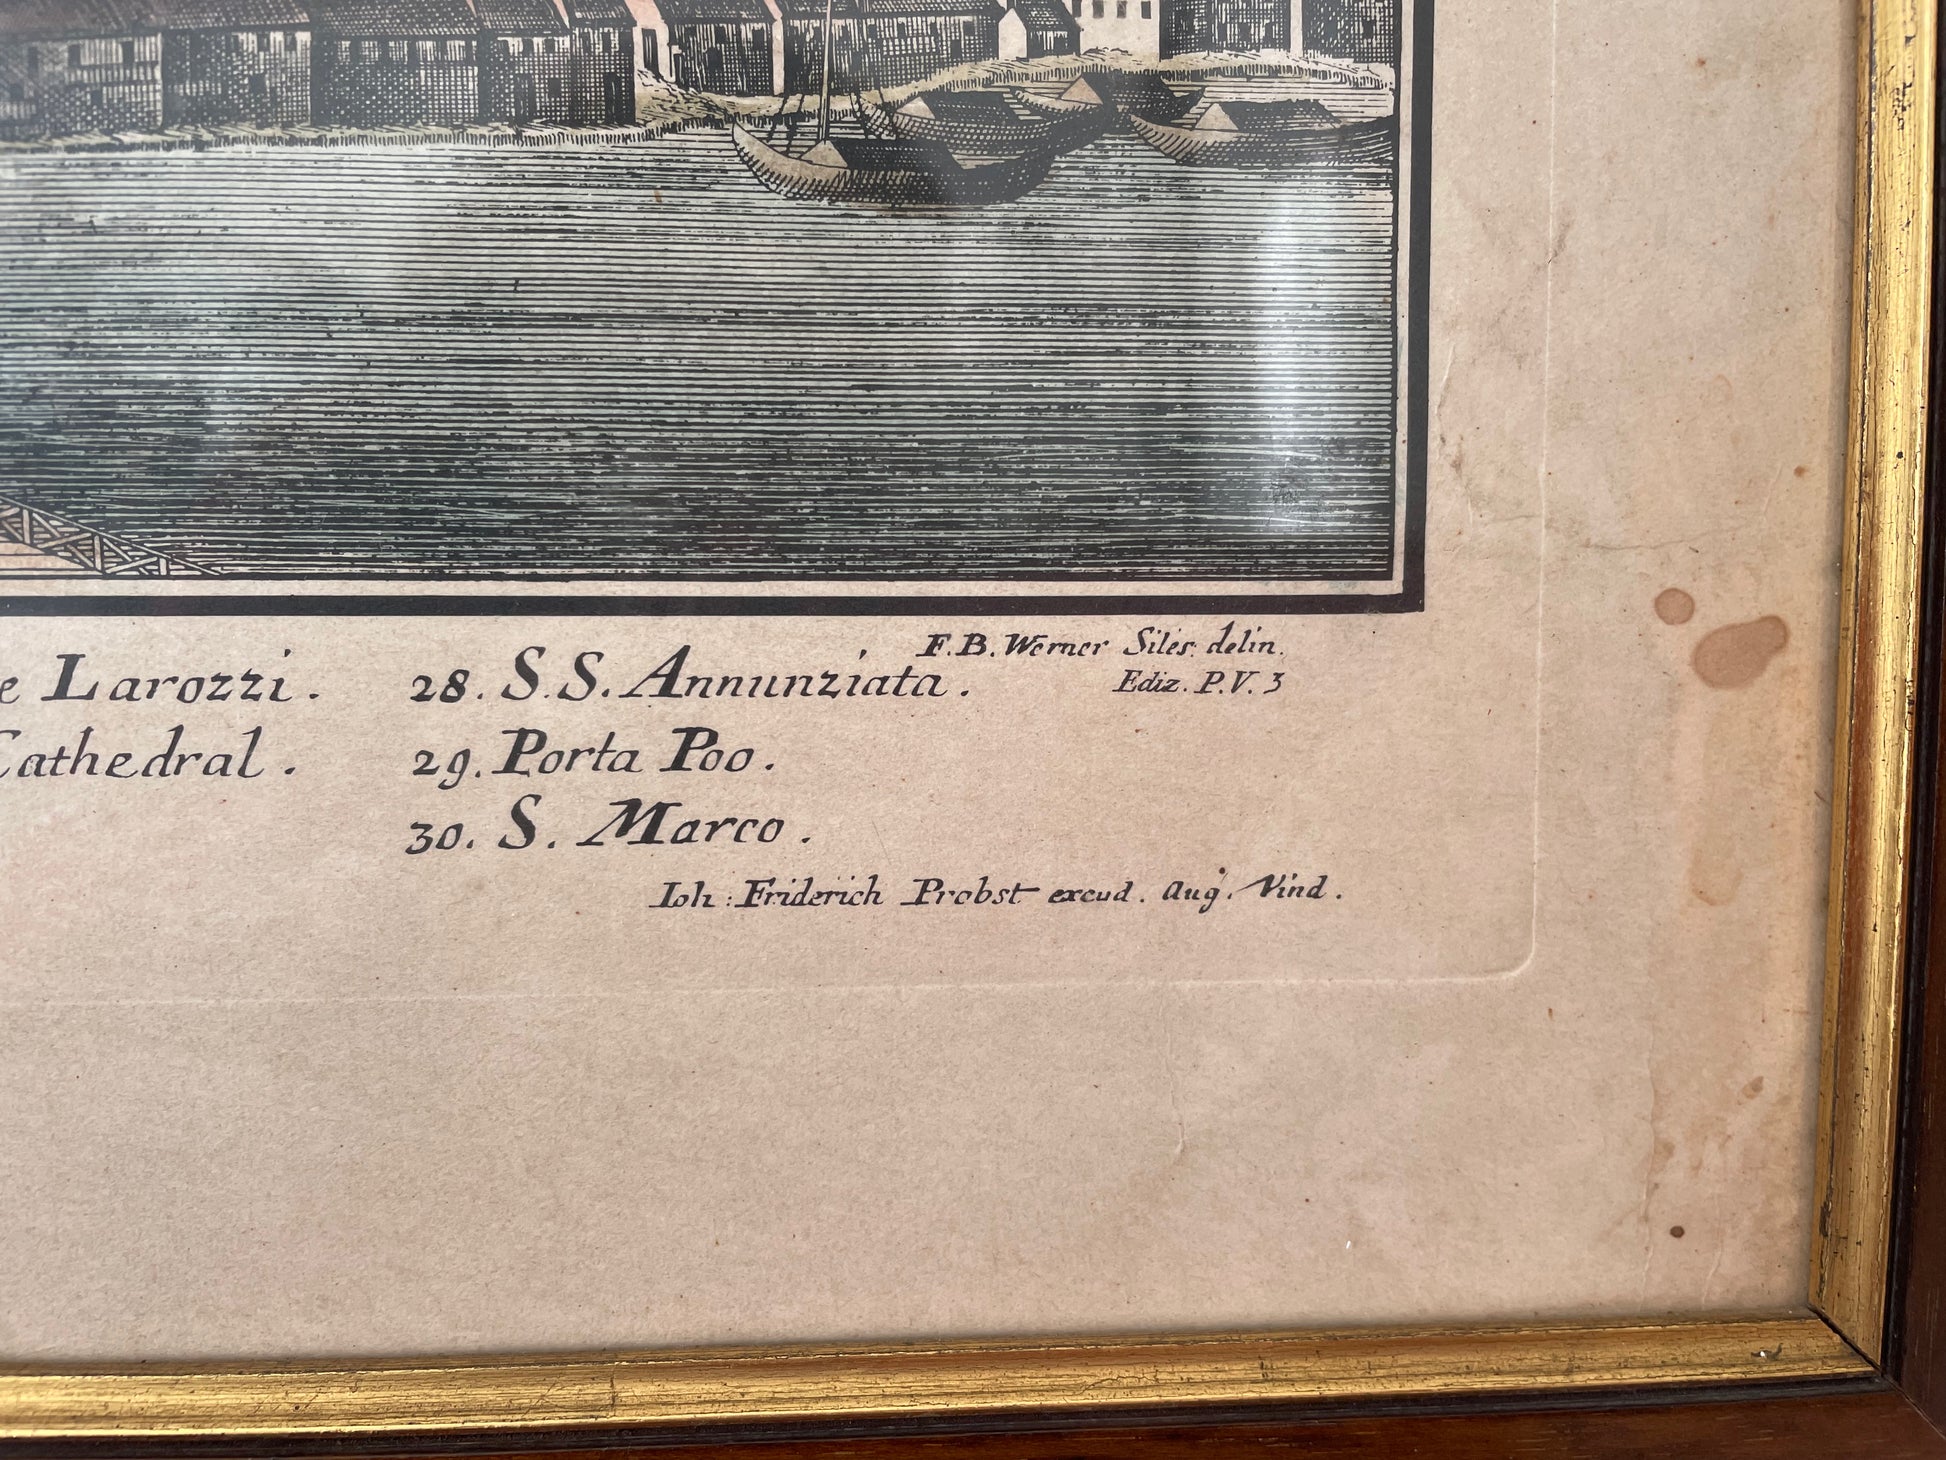 e Larozzi.
Cathedral.
28. S.S. Annunziata.
29. Porta Poo.
30. S. Marco.
F.B. Werner Siles. delin.
Ediz. P.V. 3
Ioh: Friderich Probst excud. Aug. Vind.